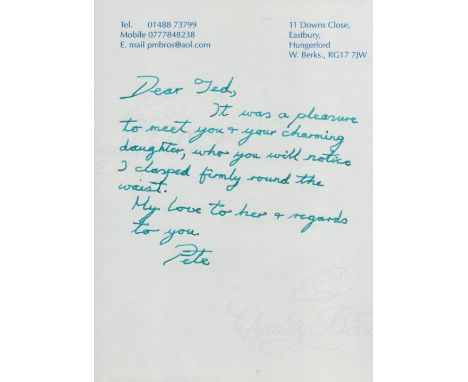 Tel. 01488 73799
Mobile 0777848238
E. mail pmbros@aol.com
11 Downs Close,
Eastbury,
Hungerford
W. Berks., RG17 7JW
Dear Ted,
It was a pleasure
to meet you & your charming
daughter, who you will notice
I clasped firmly round the
waist.
My love to her & regards
to you.
Pete
Quality Bond